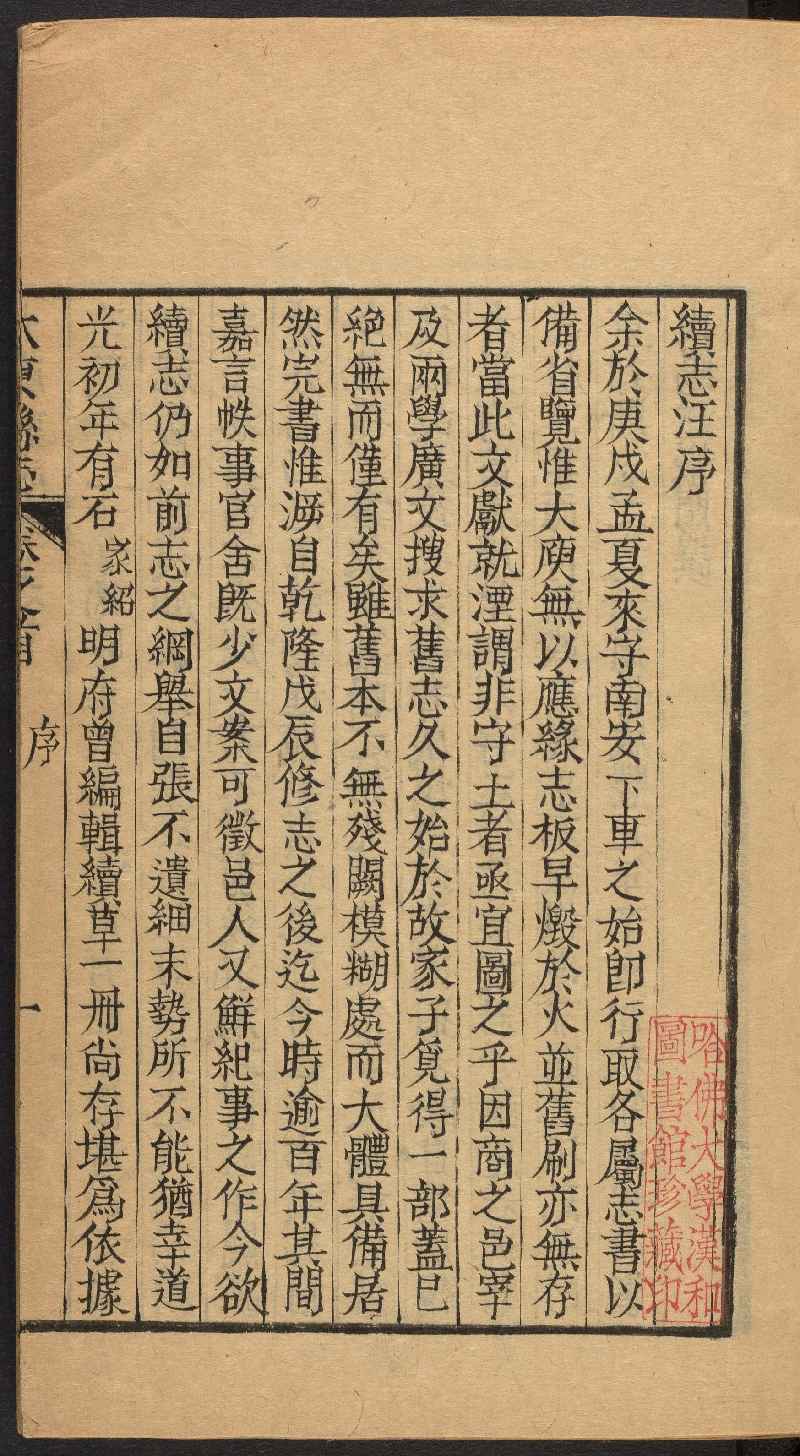 續志汪序
余於庚戍孟夏來守南安下車之始卽行取各屬志書以
備省覽惟大庾無以應緣志板早燬於火並舊刷亦無存
者當此文獻就湮謂非守土者亟宜圖之乎因商之邑宰
及兩學廣文搜求舊志久之始於故家子覓得一部蓋已
絕無而僅有矣雖舊本不無殘闕模糊處而大體具備居
然完書惟溯自乾隆戊辰修志之後迄今時逾百年其間
嘉言帙事官舍既少文案可徵邑人又鮮紀事之作今欲
續志仍如前志之綱舉目張不遺細末勢所不能猶幸道
光初年有石家紹明府曾編輯續草一冊尚存堪爲依據
大庾縣志 卷之首 序 一
哈佛大學漢和
圖書館珍藏印